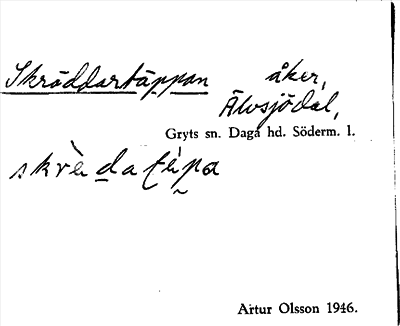 Skräddartäppan åker,
Älvsjödal,
Gryts sn. Daga hd. Söderm. l.
skrèdatépa
Artur Olsson 1946.